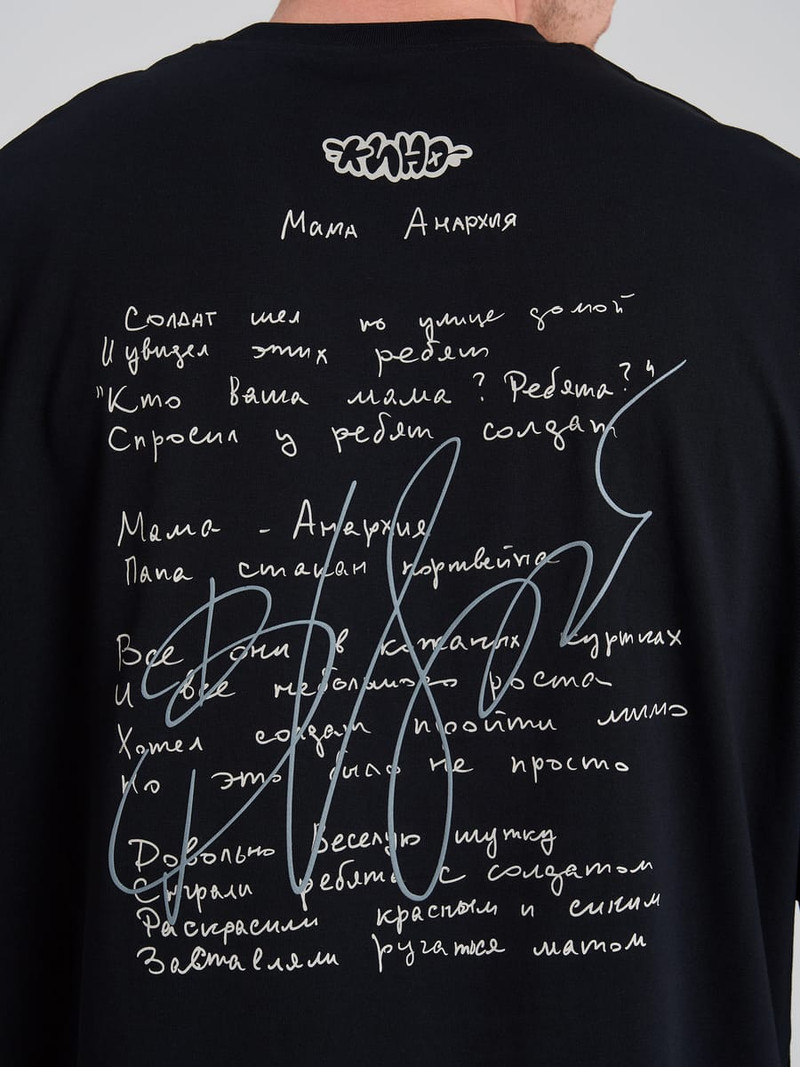 КИНО
Мама Анархия
Солдат шел по улице домой
И увидел этих ребят
"Кто ваша мама? Ребята?"
Спросил у ребят солдат
Мама - Анархия
Папа стакан портвейна
Все они в кожаных куртках
И все небольшого роста
Хотел солдат пройти мимо
Но это было не просто
Довольно веселую шутку
Сыграли ребята с солдатом
Раскрасили красным и синим
Завтавляли ругаться матом